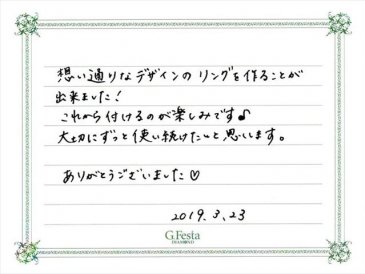 想い通りなデザインのリングを作ることが
出来ました!
これから付けるのが楽しみです♪
大切にずっと使い続けたいと思います。
ありがとうございました♡
2019.3.23
G.Festa
DIAMOND